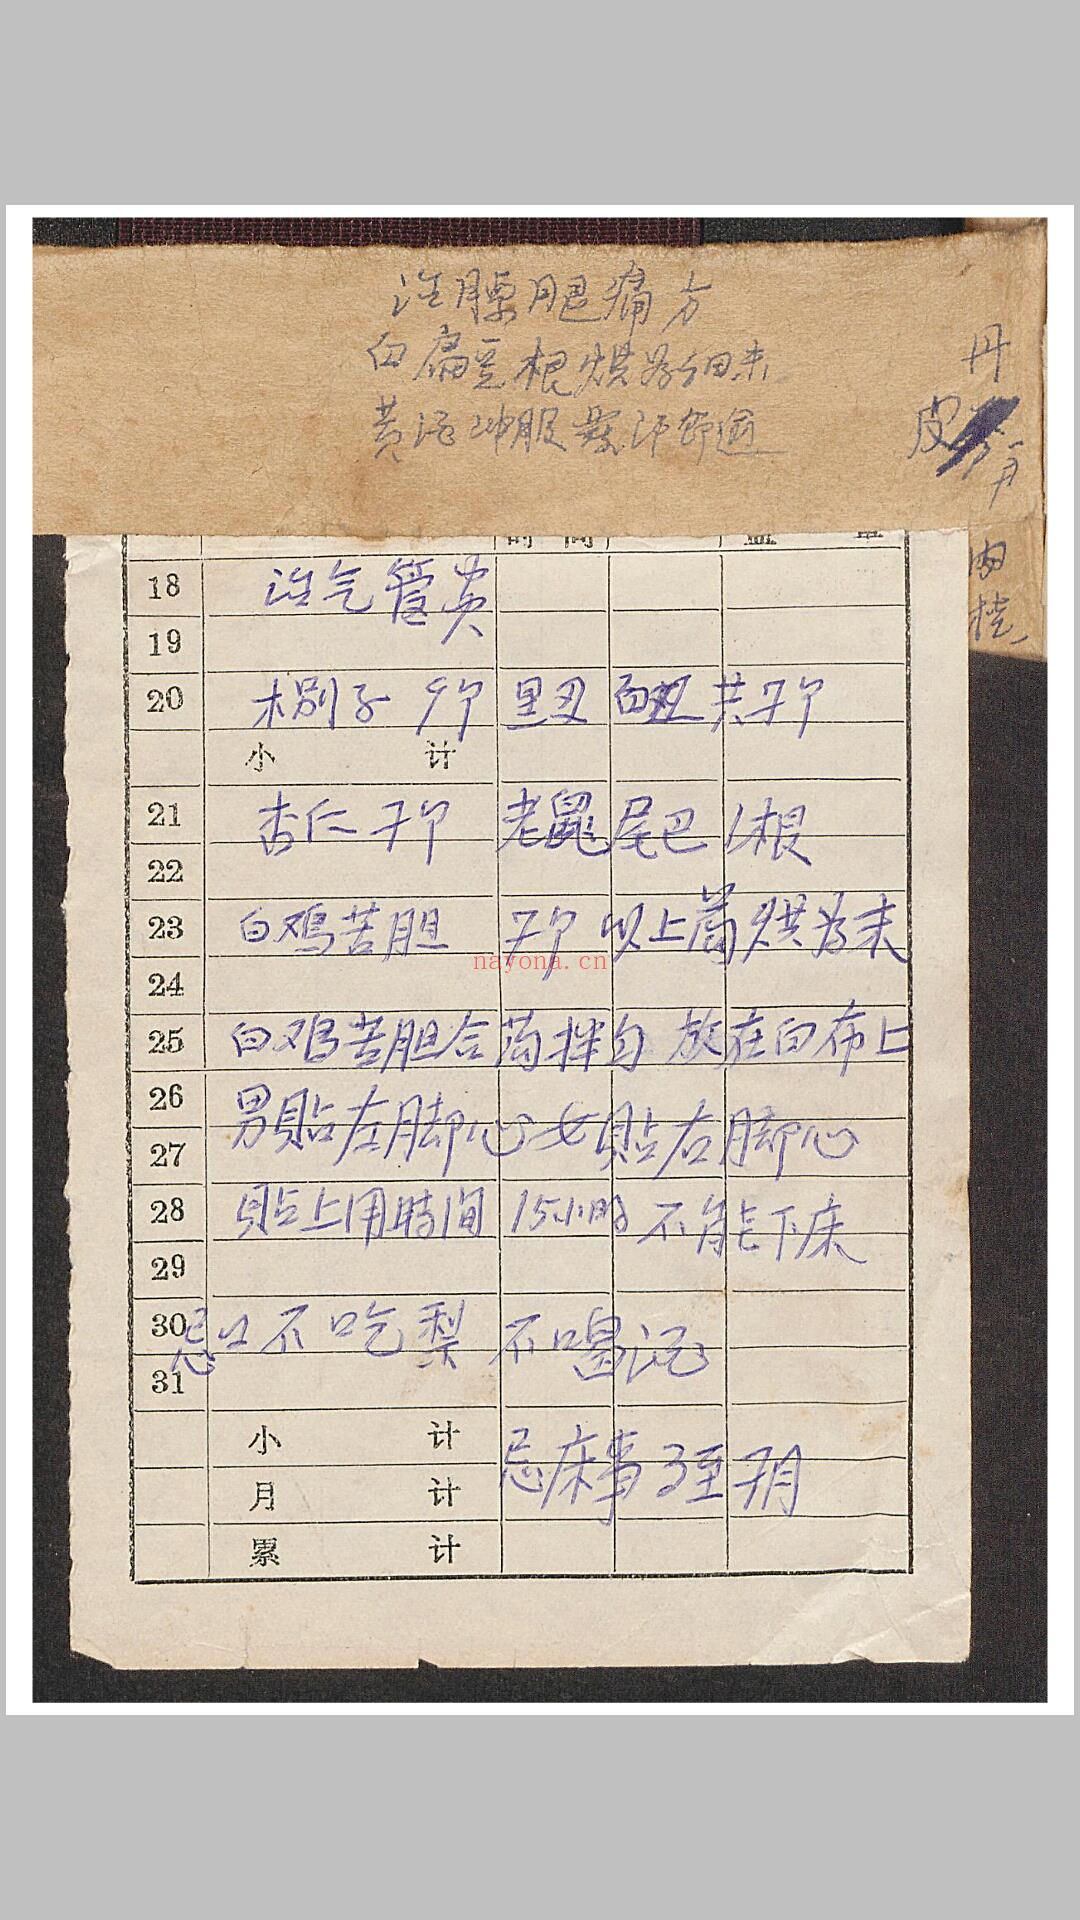 治腰腿痛方
白扁豆根烘为细末
黄酒冲服发汗即愈
丹
皮
一月
肉
桂
18 治气管炎
19
20 木别子 9个 黑丑 白丑 共7个
小 计
21 杏仁 7个 老鼠尾巴 1根
22
23 白鸡苦胆 7个 以上药烘为末
nayona.cn
24
25 白鸡苦胆合药拌匀 放在白布上
26 男貼左脚心 女貼右脚心
27
28 貼上用時间 15小时 不能下床
29
30 忌口不吃梨 不喝酒
31
小 计
忌床事 3至7月
月 计
累 计